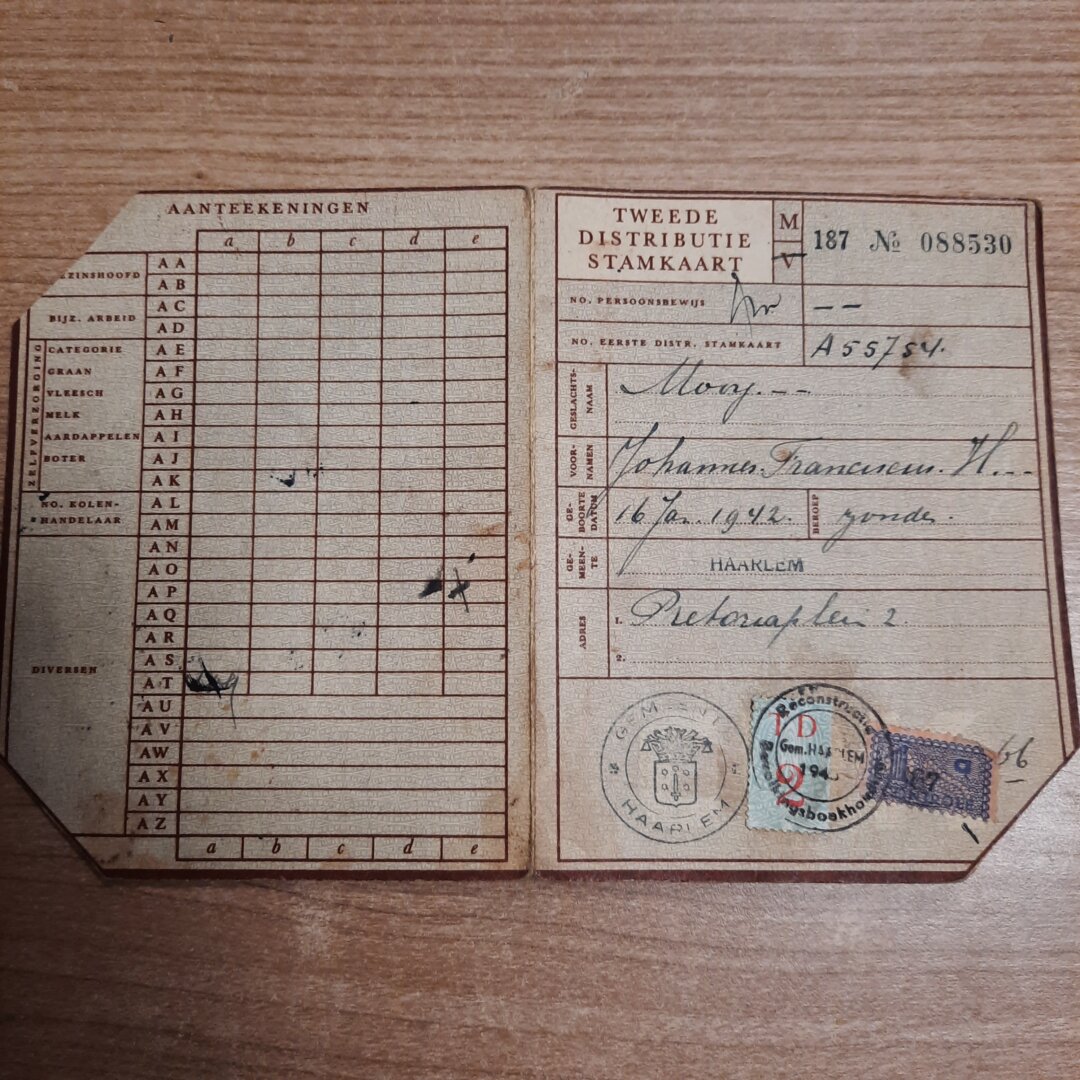 AANTEEKENINGEN
a b c d e
GEZINSHOOFD
AA
AB
BIJZ. ARBEID
AC
AD
ZELFVERZORGING
CATEGORIE AE
GRAAN AF
VLEESCH AG
MELK AH
AARDAPPELEN AI
BOTER AJ
AK
NO. KOLEN-
HANDELAAR
AL
AM
DIVERSEN
AN
AO
AP
AQ
AR
AS
AT
AU
AV
AW
AX
AY
AZ
a b c d e
TWEEDE
DISTRIBUTIE
STAMKAART
M
V
187 № 088530
NO. PERSOONSBEWIJS – –
NO. EERSTE DISTR. STAMKAART A 55754.
GESLACHTS-
NAAM
Mooy. – –
VOOR-
NAMEN
Johannes. Franciscus. H. – –
GE-
BOORTE
DATUM
16 Jan. 1942.
BEROEP
zonder.
GE-
MEEN-
TE
HAARLEM
ADRES
1. Pretoriaplein 2.
2.
GEMEENTE
HAARLEM
TD
2
Reconstructie
Gem. HAARLEM
194
Bevolkingsboekhouding
67
66